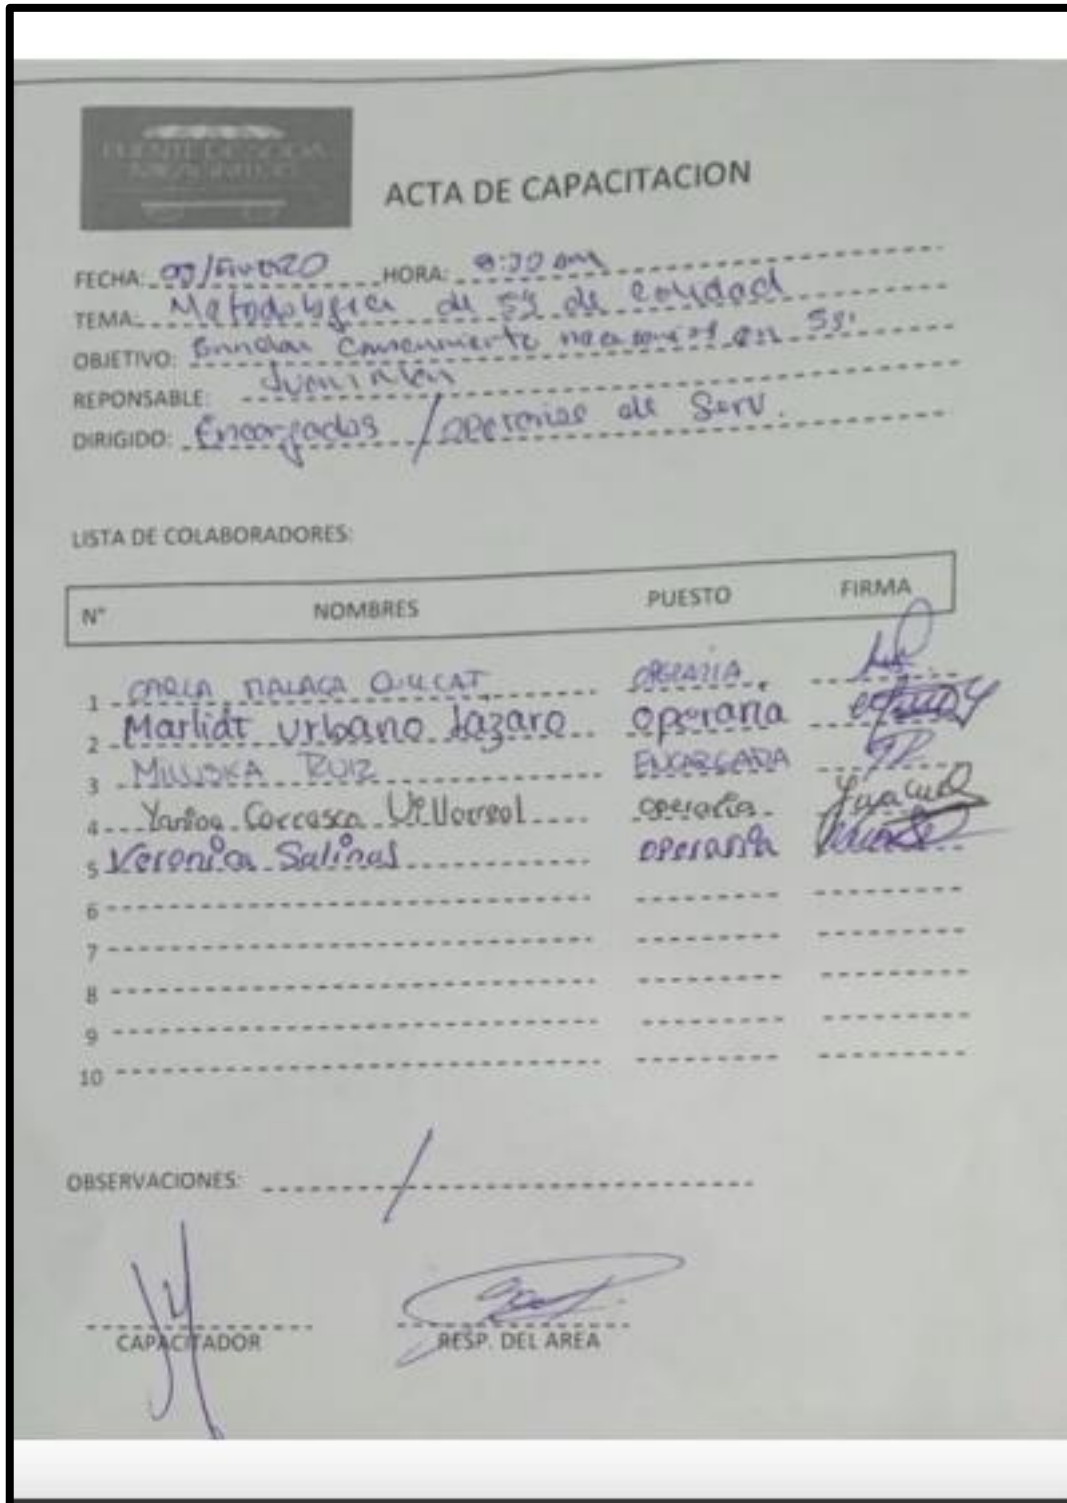 FUENTE DE SODA
ACTA DE CAPACITACION
FECHA: HORA: am
TEMA: Metodologia de 5s de Calidad
OBJETIVO: Brindar en 5s.
REPONSABLE:
DIRIGIDO: Encargados / operarias de Serv.
LISTA DE COLABORADORES:
N° NOMBRES PUESTO FIRMA
1 CARLA MALAGA OPERARIA
2 Marlidt urbano lázaro operaria
3 MILUSKA RUIZ ENCARGADA
4 Carrasco Villarreal operaria
5 Veronica Salinas operaria
6
7
8
9
10
OBSERVACIONES: /
CAPACITADOR RESP. DEL AREA